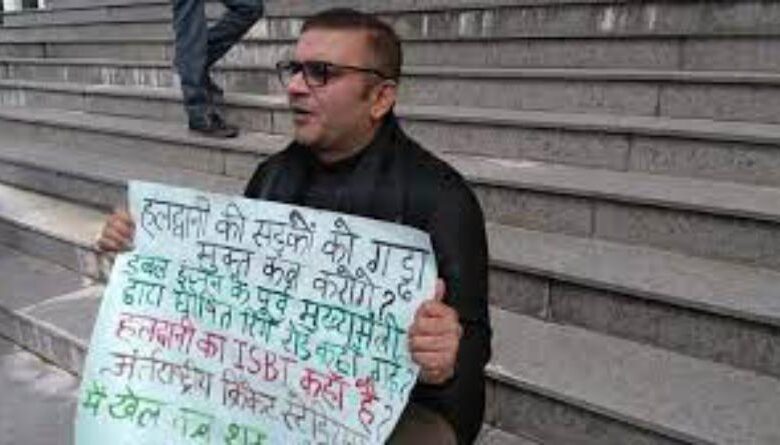 हल्द्वानी की सड़कों को गड्ढा
मुक्त कब करोगे?
डबल इंजन के पूर्व मुख्यमंत्री
द्वारा घोषित रिंग रोड कहाँ गई?
हल्द्वानी का ISBT कहाँ है?
अंर्तराष्ट्रीय क्रिकेट
में खेल कब